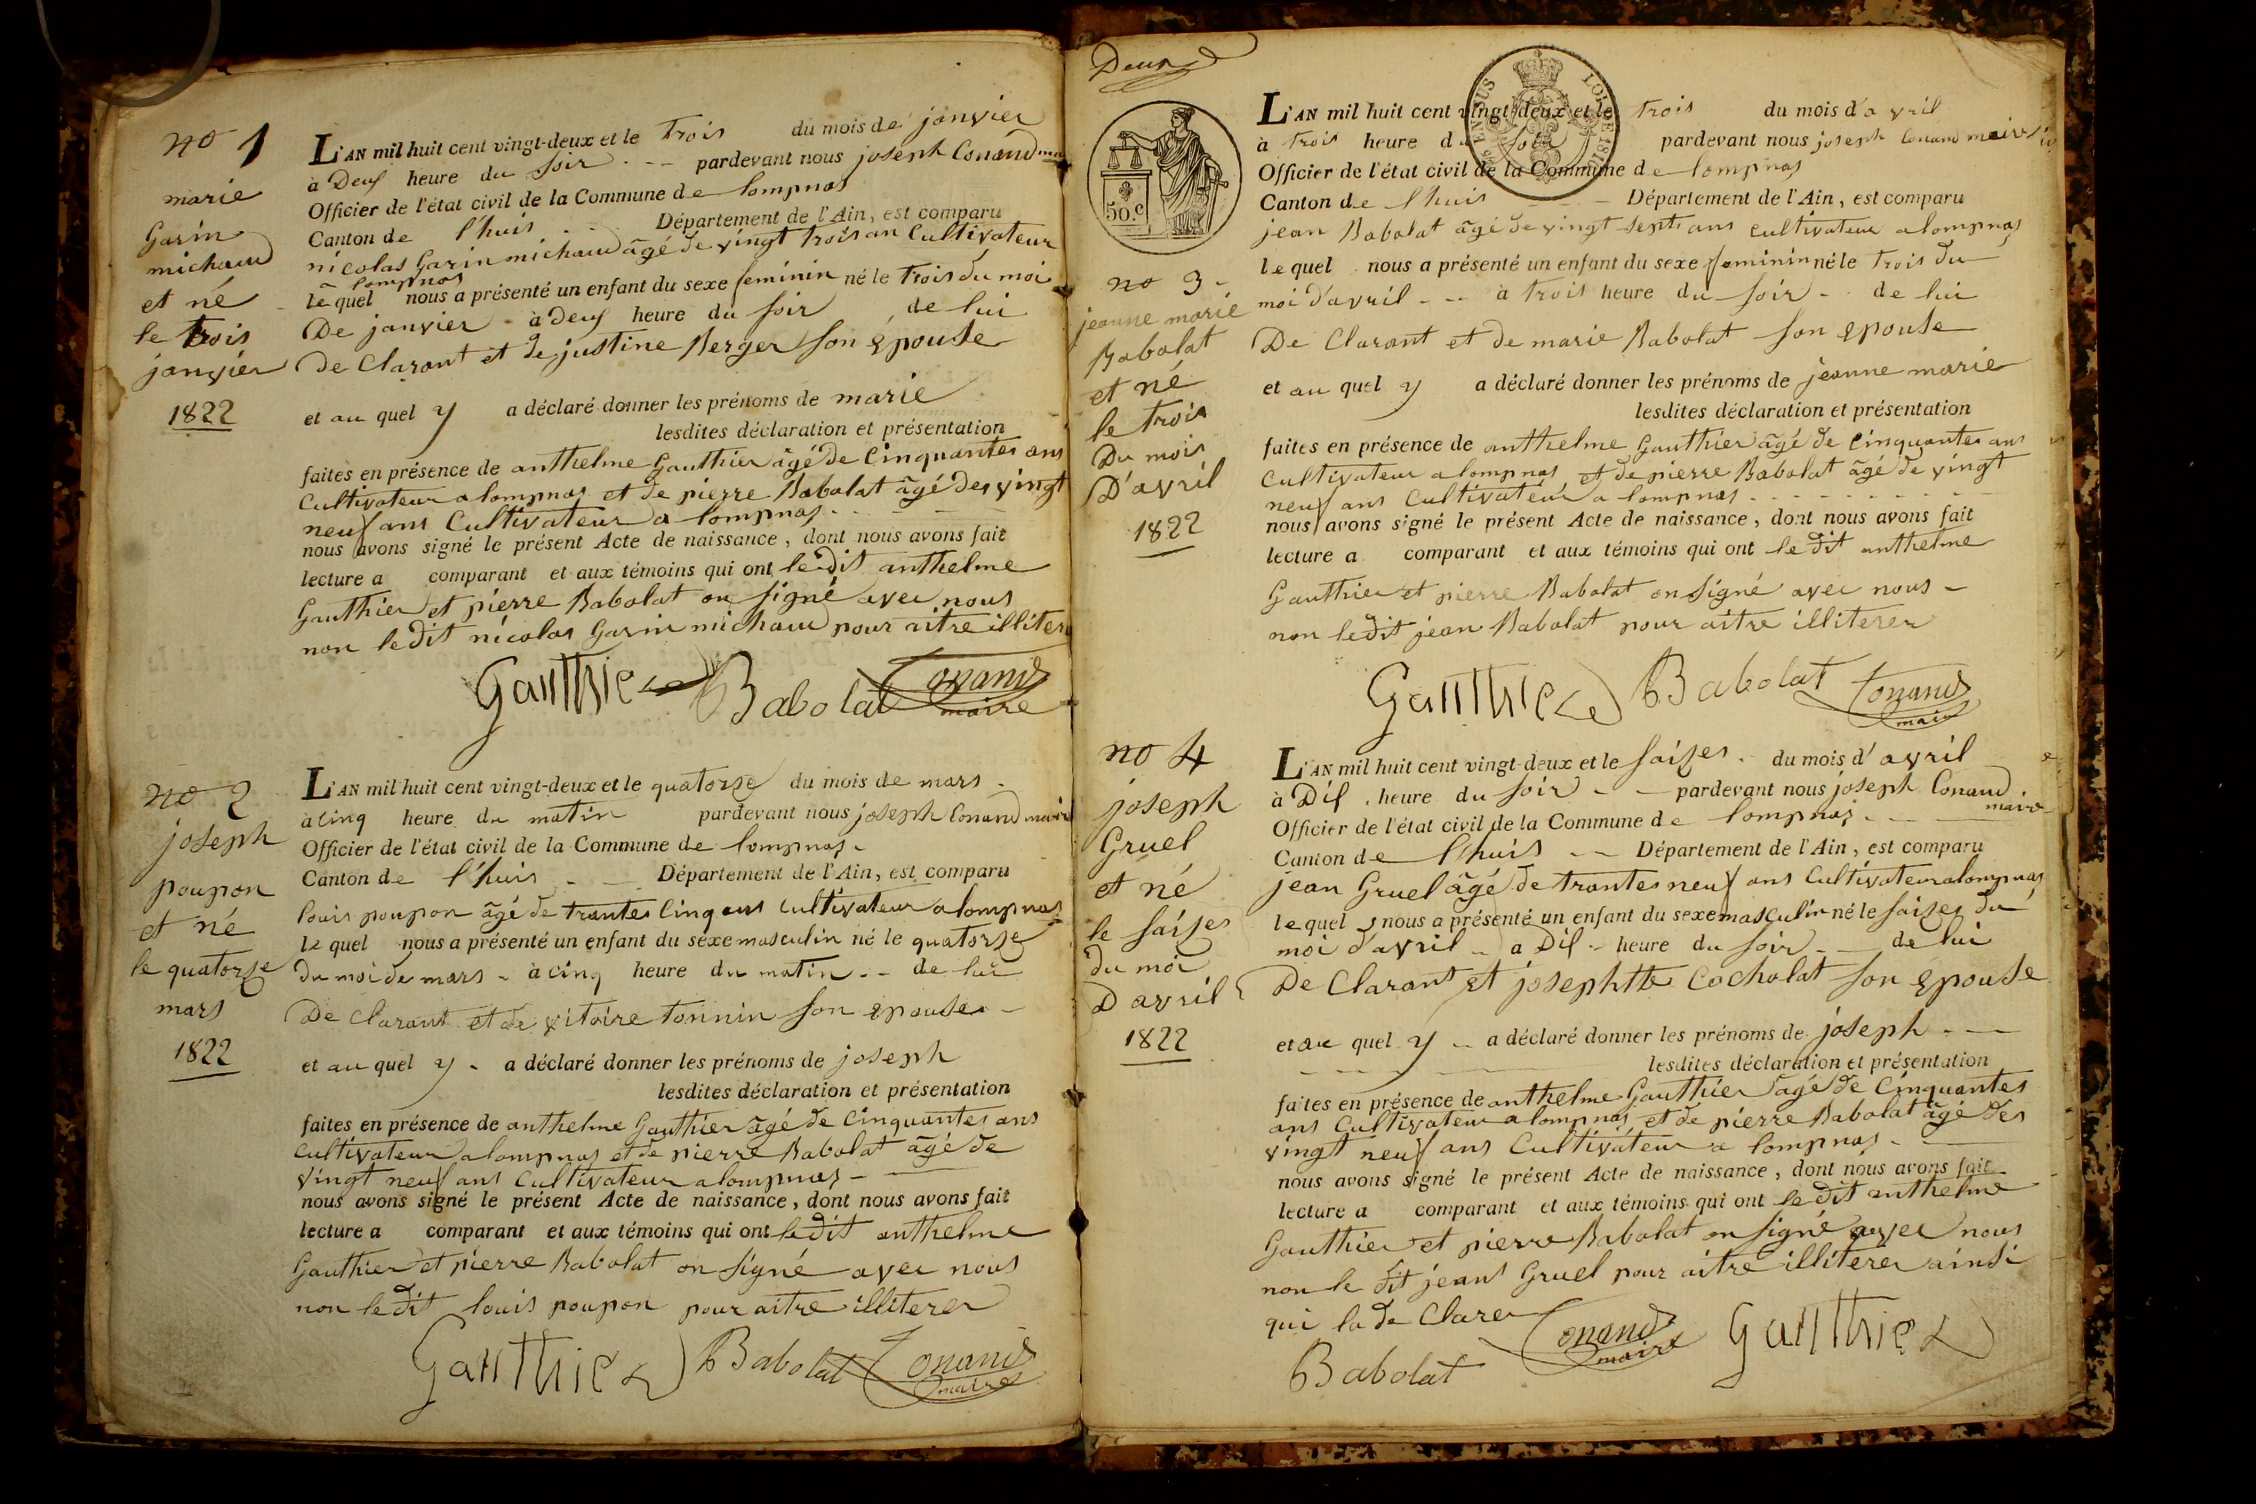 no 1
marie
Garin
michaud
et né
le trois
janvier
1822
L'AN mil huit cent vingt-deux et le trois du mois de janvier
à Deuf heure du soir pardevant nous joseph Conand
Officier de l'état civil de la Commune de lompnas
Canton de l'huis Département de l'Ain, est comparu
nicolas Garin michaud âgé de vingt trois an Cultivateur
a lompnas
le quel nous a présenté un enfant du sexe feminin né le trois du moi
De janvier à deuf heure du soir de lui
de Clarant et de justine Berger son epouse
et au quel y a déclaré donner les prénoms de marie
lesdites déclaration et présentation
faites en présence de anthelme Gauthier âgé de Cinquantes ans
Cultivateur a lompnas et de pierre Babolat âgé des vingt
neuf ans Cultivateur a lompnas
nous avons signé le présent Acte de naissance, dont nous avons fait
lecture a comparant et aux témoins qui ont le dit anthelme
Gauthier et pierre Babolat on signé avec nous
non le dit nicolas Garin michaud pour aitre illiterer
Gauthier Babolat Conand
maire
no 2
joseph
poupon
et né
le quatorze
mars
1822
L'AN mil huit cent vingt-deux et le quatorze du mois de mars
à cinq heure du matin pardevant nous joseph Conand maire
Officier de l'état civil de la Commune de lompnas
Canton de l'huis Département de l'Ain, est comparu
louis poupon âgé de trantes Cinq ans Cultivateur a lompnas
le quel nous a présenté un enfant du sexe masculin né le quatorze
du moi de mars à cinq heure du matin de lui
De clarant et de vitoire tonnin son epouse
et au quel y a déclaré donner les prénoms de joseph
lesdites déclaration et présentation
faites en présence de anthelme Gauthier âgé de Cinquantes ans
Cultivateur a lompnas et de pierre Babolat âgé de
vingt neuf ans Cultivateur a lompnas
nous avons signé le présent Acte de naissance, dont nous avons fait
lecture a comparant et aux témoins qui ont le dit anthelme
Gauthier et pierre Babolat on signé avec nous
non le dit louis poupon pour aitre illiterer
Gauthier Babolat Conand
maire
Deux
50.c
LOI DE 1816
no 3
jeanne marie
Babolat
et né
le trois
Du mois
D'avril
1822
L'AN mil huit cent vingt-deux et le trois du mois d'avril
à trois heure du soir pardevant nous joseph Conand maire
Officier de l'état civil de la Commune de lompnas
Canton de l'huis Département de l'Ain, est comparu
jean Babolat âgé de vingt septs ans cultivateur a lompnas
le quel nous a présenté un enfant du sexe feminin né le trois du
moi d'avril à trois heure du soir de lui
De Clarant et de marie Babolat son epouse
et au quel y a déclaré donner les prénoms de jeanne marie
lesdites déclaration et présentation
faites en présence de anthelme Gauthier âgé de Cinquantes ans
Cultivateur a lompnas et de pierre Babolat âgé de vingt
neuf ans Cultivateur a lompnas
nous avons signé le présent Acte de naissance, dont nous avons fait
lecture a comparant et aux témoins qui ont le dit anthelme
Gauthier et pierre Babolat on signé avec nous
non le dit jean Babolat pour aitre illiterer
Gauthier Babolat Conand
maire
no 4
joseph
Gruel
et né
le saizes
du moi
D avril
1822
L'AN mil huit cent vingt-deux et le saizes du mois d'avril
à Dif heure du soir pardevant nous joseph Conand
maire
Officier de l'état civil de la Commune de lompnas
Canton de l'huis Département de l'Ain, est comparu
jean Gruel âgé de trantes neuf ans Cultivateur a lompnas
le quel nous a présenté un enfant du sexe masculin né le saizes du
moi d'avril a Dif heure du soir de lui
De Clarant et josephtte Cocholat son epouse
et au quel y a déclaré donner les prénoms de joseph
lesdites déclaration et présentation
faites en présence de anthelme Gauthier âgé de Cinquantes
ans Cultivateur a lompnas et de pierre Babolat âgé des
vingt neuf ans Cultivateur a lompnas
nous avons signé le présent Acte de naissance, dont nous avons fait
lecture a comparant et aux témoins qui ont le dit anthelme
Gauthier et pierre Babolat on signé avec nous
non le dit jean Gruel pour aitre illiterer ainsi
qui la de Clarer
Babolat Conand Gauthier
maire